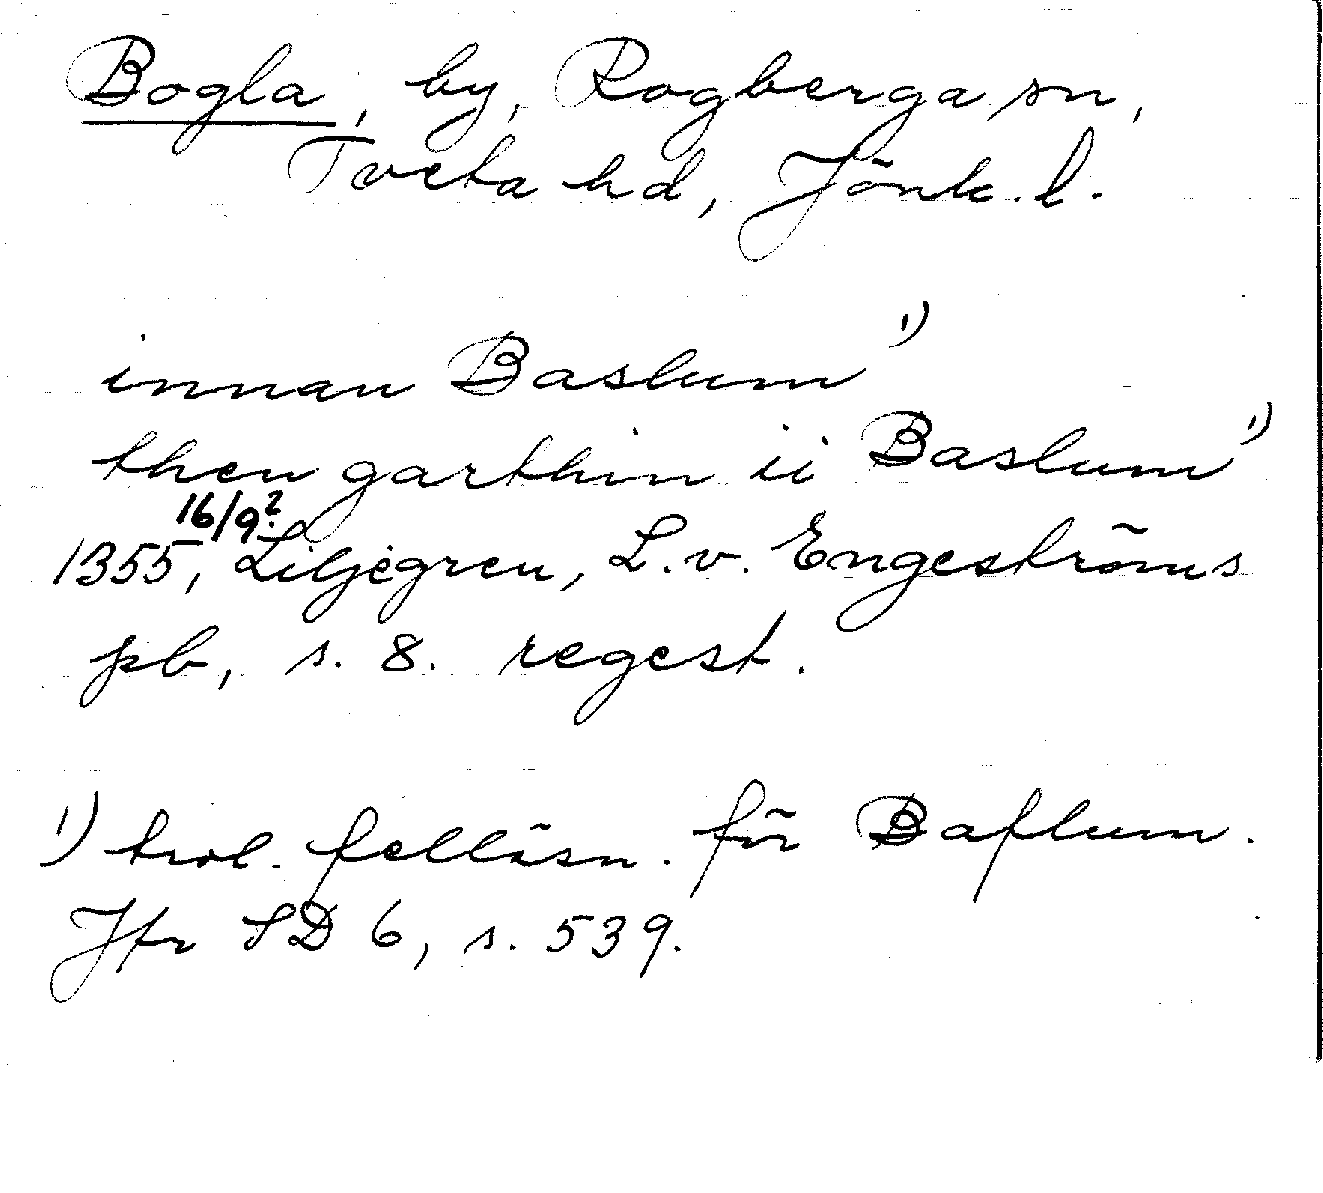 Bogla, by, Rogberga sn,
Tveta hd, Jönk. l.
innan Baslum 1)
then garthin ii Baslum 1)
16/9?
1355, Liljegren, L. v. Engeströms
pb, s. 8. regest.
1) trol. felläsn. för Baflum.
Jfr SD 6, s. 539.